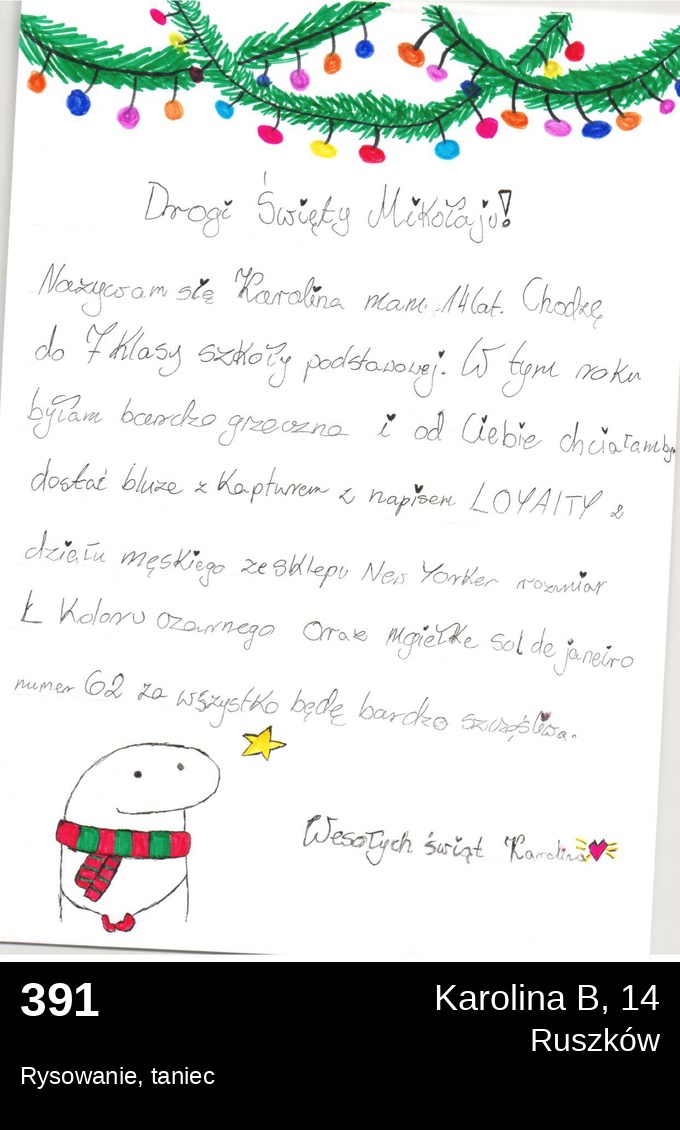 Drogi Święty Mikołaju!
Nazywam się Karolina mam 14 lat. Chodzę
do 7 klasy szkoły podstawowej. W tym roku
byłam bardzo grzeczna i od Ciebie chciałamby
dostać bluze z kapturem z napisem LOYAlTY z
działu męskiego ze sklepu New Yorker rozmiar
Ł koloru czarnego oraz mgiełke sol de janeiro
numer 62 za wszystko będę bardzo szczęśliwa.
Wesołych świąt Karolina
391
Karolina B, 14
Ruszków
Rysowanie, taniec